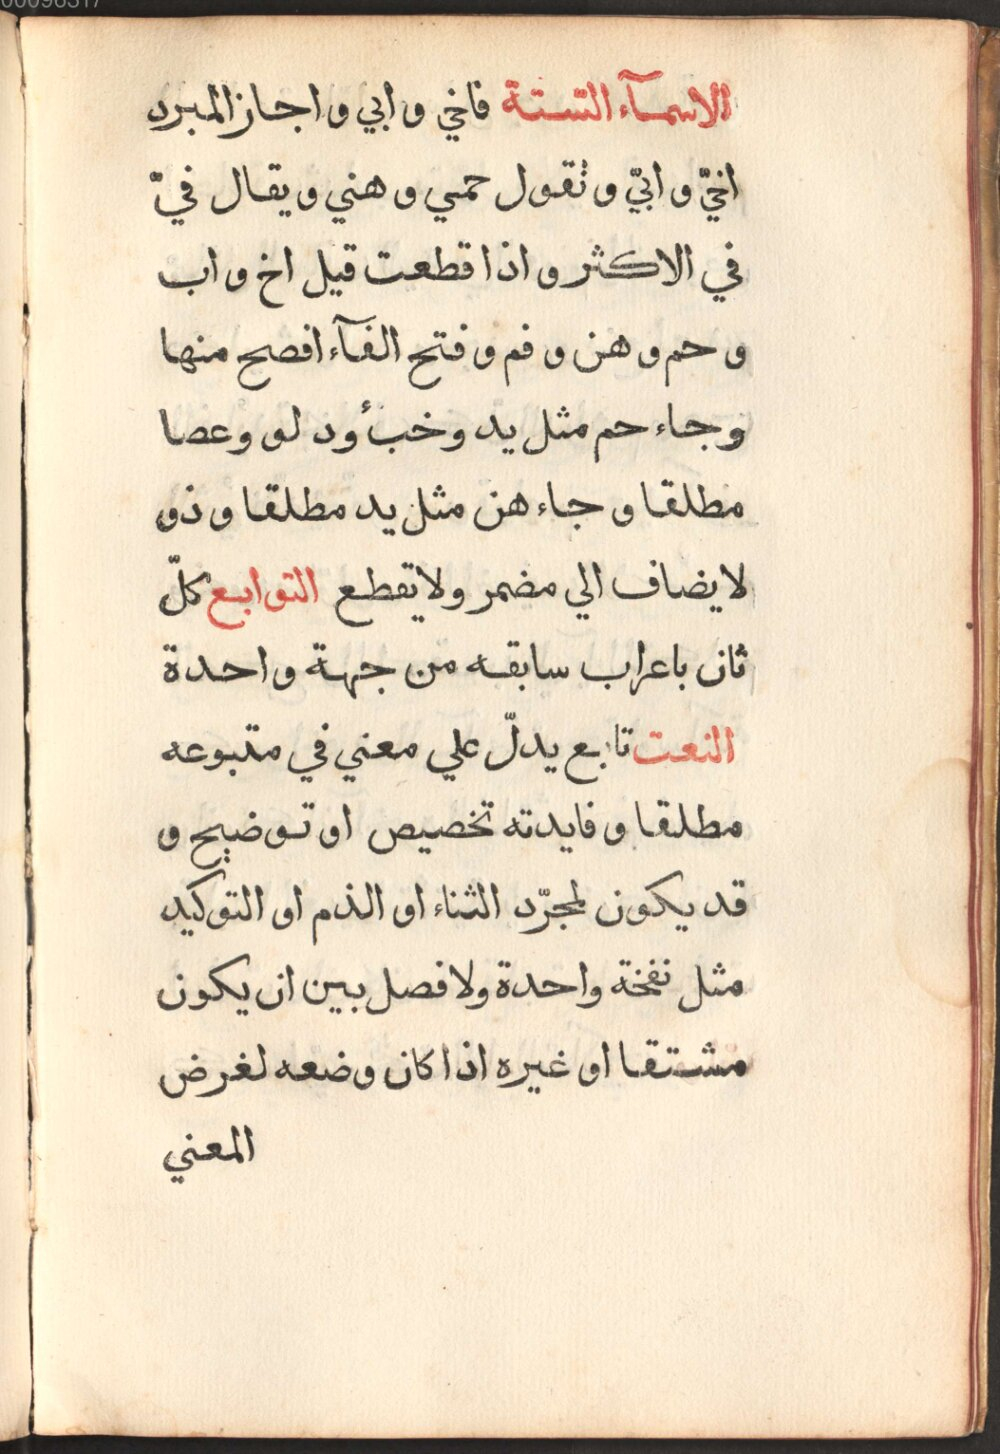 الاسمآء الستة فاخي و ابي و اجاز المبرد
اخيّ و ابيّ و تقول حمي و هني و يقال فيّ
في الاكثر و اذا قطعت قيل اخ و اب
و حم و هن و فم و فتح الفآء افصح منها
وجاء حم مثل يد وخبأ ودلو وعصا
مطلقا و جاء هن مثل يد مطلقا و ذو
لا يضاف الي مضمر ولا تقطع التوابع كلّ
ثان باعراب سابقه من جهة واحدة
النعت تابع يدلّ علي معني في متبوعه
مطلقا و فايدته تخصيص او توضيح و
قد يكون لمجرّد الثناء او الذم او التوكيد
مثل نفخة واحدة ولا فصل بين ان يكون
مشتقا او غيره اذا كان وضعه لغرض
المعني